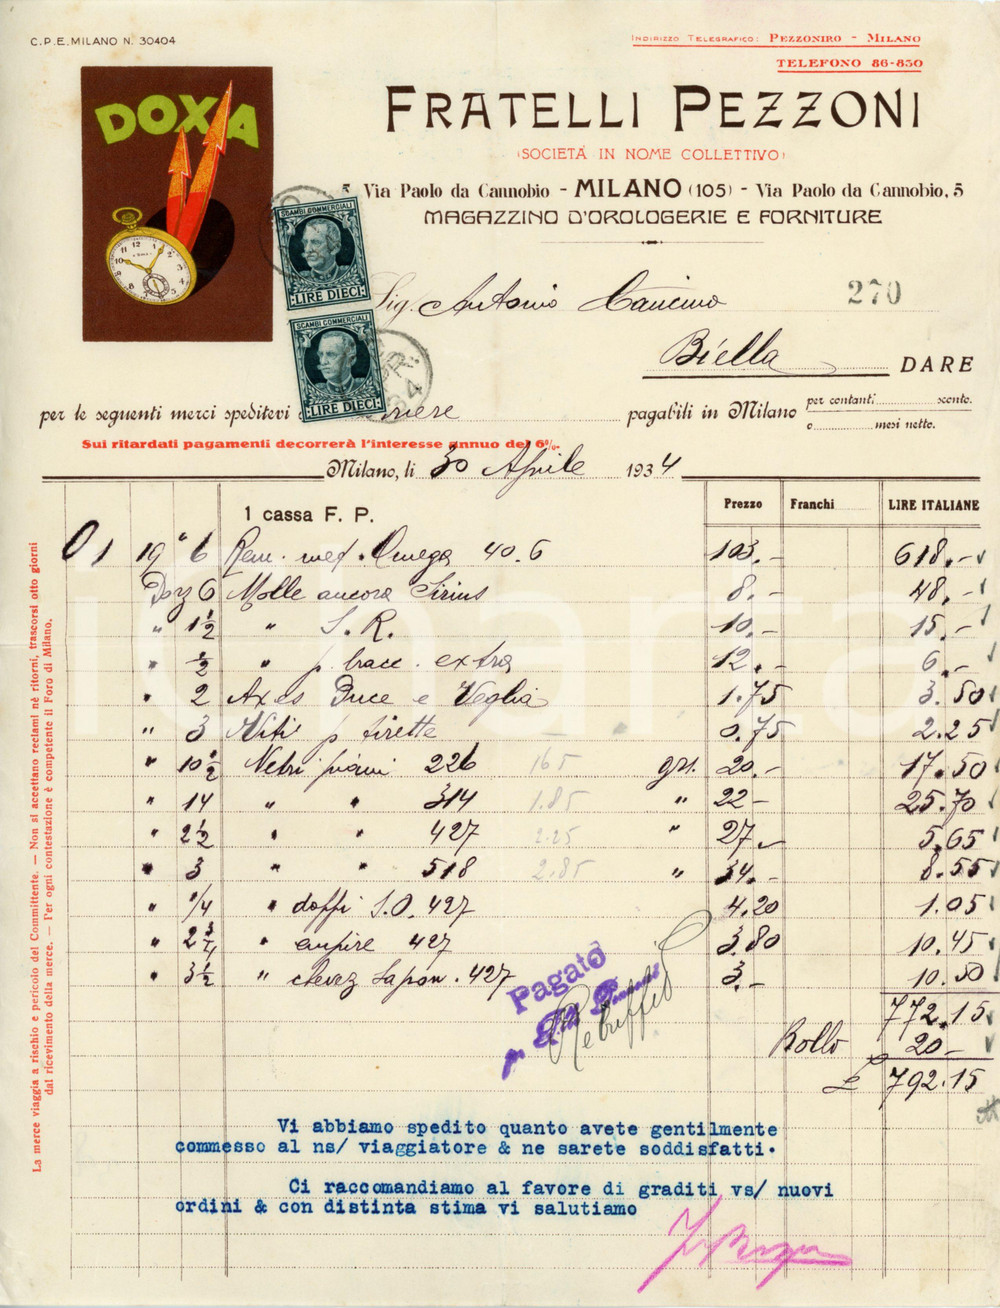 C.P.E. MILANO N. 30404
INDIRIZZO TELEGRAFICO: PEZZONIRO - MILANO
TELEFONO 86-850
DOXA
FRATELLI PEZZONI
(SOCIETÀ IN NOME COLLETTIVO)
5 Via Paolo da Cannobio - MILANO (105) - Via Paolo da Cannobio, 5
MAGAZZINO D'OROLOGERIE E FORNITURE
SCAMBI COMMERCIALI
LIRE DIECI
SCAMBI COMMERCIALI
LIRE DIECI
Sig. Antonio Cancino 270
Biella DARE
per le seguenti merci speditevi pagabili in Milano per contanti sconto.
o mesi netto.
Sui ritardati pagamenti decorrerà l'interesse annuo del 6%.
Milano, li 30 Aprile 1934
1 cassa F. P. Prezzo Franchi LIRE ITALIANE
01 19" 6 Rem. med. Omega 40.6 103.- 618.-
Dozz 6 Molle ancora Sirius 8.- 48.-
" 1½ " S.R. 10.- 15.-
" ½ " p. bracc. extra 12.- 6.-
" 2 Axes Puce e Veglia 1.75 3.50
" 3 Viti p tirette 0.75 2.25
" 10½ Vetri piani 226 165 grs. 20.- 17.50
" 14 " " 314 1.85 " 22- 25.70
" 2½ " " 427 2.25 " 27.- 5.65
" 3 " " 518 2.85 " 34.- 8.55
" 1/4 " doppi S.O. 427 4.20 1.05
" 2¾ " empire 427 3.80 10.45
" 3½ " chevez Sapon. 427 3.- 10.50
772.15
Bollo 20-
£ 792.15
Pagato
Vi abbiamo spedito quanto avete gentilmente
commesso al ns/ viaggiatore & ne sarete soddisfatti.
Ci raccomandiamo al favore di graditi vs/ nuovi
ordini & con distinta stima vi salutiamo
La merce viaggia a rischio e pericolo del Committente. — Non si accettano reclami nè ritorni, trascorsi otto giorni
dal ricevimento della merce. — Per ogni contestazione è competente il Foro di Milano.
icharta